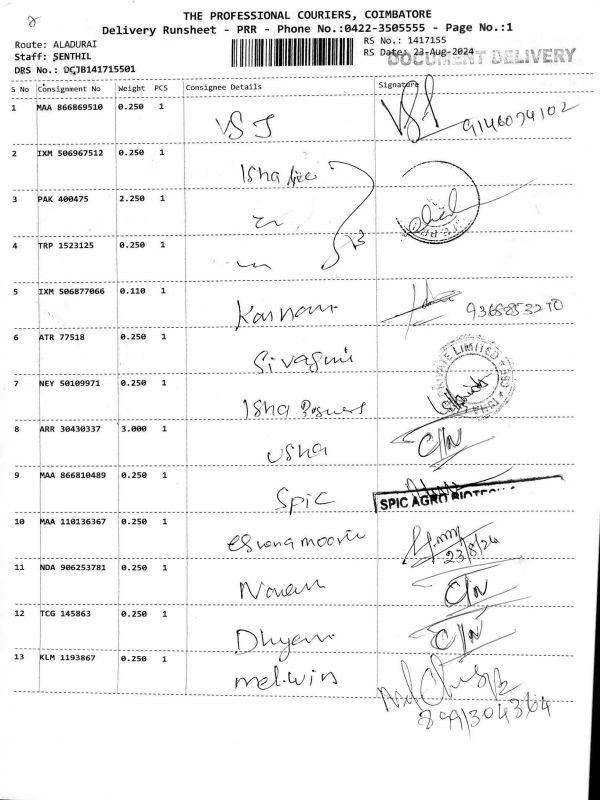 THE PROFESSIONAL COURIERS, COIMBATORE
Delivery Runsheet - PRR - Phone No.:0422-3505555 - Page No.:1
Route: ALADURAI
RS No.: 1417155
Staff: SENTHIL
RS Date: 23-Aug-2024
DOCUMENT DELIVERY
DRS No.: DCJB141715501
S No Consignment No Weight PCS Consignee Details Signature
1 MAA 866869510 0.250 1 VST
2 IXM 506967512 0.250 1 Isha
3 PAK 400475 2.250 1
4 TRP 1523125 0.250 1
5 IXM 506877066 0.110 1 Kannan
6 ATR 77518 0.250 1 Sivagmi
PRIVATE LIMITED
7 NEY 50109971 0.250 1 Isha
8 ARR 30430337 3.000 1 Usha C/N
9 MAA 866810489 0.250 1 Spic
SPIC AGRO BIOTECH
10 MAA 110136367 0.250 1
23/8/24
11 NDA 906253781 0.250 1 C/N
12 TCG 145863 0.250 1 C/N
13 KLM 1193867 0.250 1 melwin